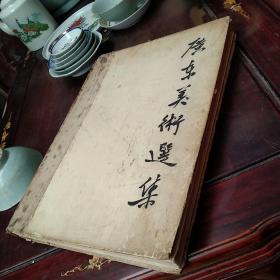 廣东美術選集